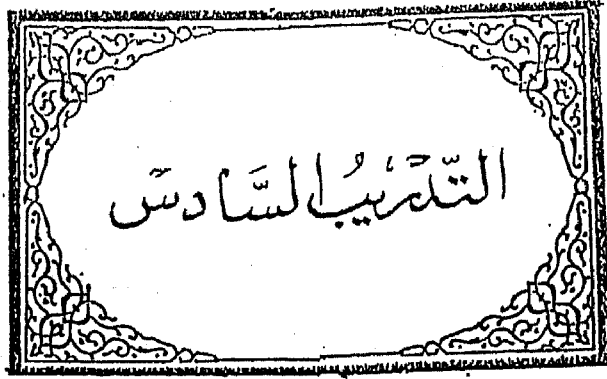 التَّدريبُ السَّادس